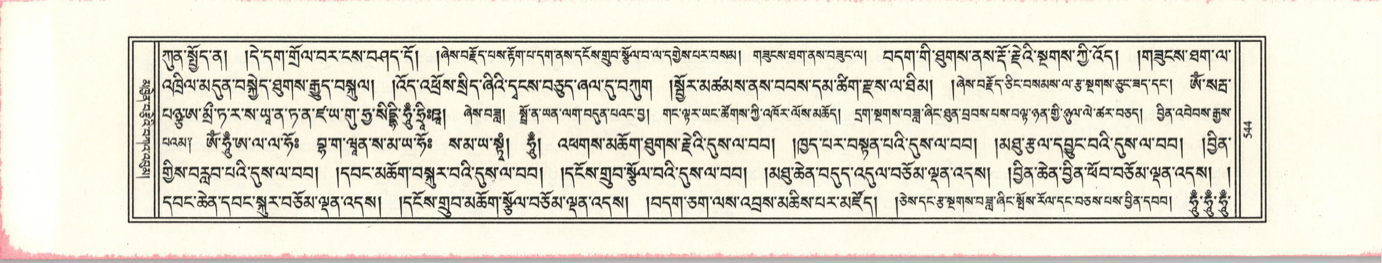 ཀུན་སྤྱོད་ན། །དེ་དག་གྲོལ་བར་ངས་བཤད་དོ། །ཞེས་བརྗོད་པས་རྟོག་པ་དག་ནས་དངོས་གྲུབ་སྩོལ་བ་ལ་དགྱེས་པར་བསམ། གཟུངས་ཐག་ནས་བཟུང་ལ། བདག་གི་ཐུགས་ནས་རྡོ་རྗེའི་སྔགས་ཀྱི་འོད། །གཟུངས་ཐག་ལ་
འཁྲིལ་མདུན་བསྐྱེད་ཐུགས་རྒྱུད་བསྐུལ། །འོད་འཕྲོས་སྲིད་ཞིའི་དྭངས་བཅུད་ཞལ་དུ་བཀུག །སྦྱོར་མཚམས་ནས་བབས་དམ་ཚིག་རྫས་ལ་ཐིམ། །ཞེས་བརྗོད་ཅིང་བསམས་ལ་རྩ་སྔགས་ཅུང་ཟད་དང་། ཨོཾ་སརྦ་
པཉྩ་ཨ་མྲྀ་ཏ་ར་ས་ཡཱ་ན་ཏ་ན་ཛ་ཡ་གུ་ཧྱ་སིདྡྷི་ཧཱུྃ་ཧྲཱིཿཋཱ། ཞེས་བཟླ། སྨོན་ཡན་ལག་བདུན་པའང་བྱ། གང་ལྟར་ཡང་ཚོགས་ཀྱི་འཁོར་ལོས་མཆོད། དྲག་སྔགས་བཟླ་ཞིང་ཐུན་བྲབས་པས་བལྟ་ཉན་གྱི་ཉུལ་ལེ་ཚར་བཅད། བྱིན་འབེབས་རྒྱས་
པའམ། ཨོཾ་ཧཱུྃ་ཨ་ལ་ལ་ཧོཿ བྷ་ག་ཝཱན་ས་མ་ཡ་ཧོཿ ས་མ་ཡ་སྟྭཾ། ཧཱུྃ། འཕགས་མཆོག་ཐུགས་རྗེའི་དུས་ལ་བབ། །ཁྱད་པར་བསྟན་པའི་དུས་ལ་བབ། །མཐུ་རྩལ་དབྱུང་བའི་དུས་ལ་བབ། །བྱིན་
གྱིས་བརླབ་པའི་དུས་ལ་བབ། །དབང་མཆོག་བསྐུར་བའི་དུས་ལ་བབ། །དངོས་གྲུབ་སྩོལ་བའི་དུས་ལ་བབ། །མཐུ་ཆེན་བདུད་འདུལ་བཅོམ་ལྡན་འདས། །བྱིན་ཆེན་བྱིན་ཕོབ་བཅོམ་ལྡན་འདས། །
དབང་ཆེན་དབང་སྐུར་བཅོམ་ལྡན་འདས། །དངོས་གྲུབ་མཆོག་སྩོལ་བཅོམ་ལྡན་འདས། །བདག་ཅག་ལས་འབྲས་མཆིས་པར་མཛོད། །ཅེས་དང་རྩ་སྔགས་བཟླ་ཞིང་སྤོས་རོལ་དང་བཅས་པས་བྱིན་དབབ། ཧཱུྃ་ཧཱུྃ་ཧཱུྃ་
544